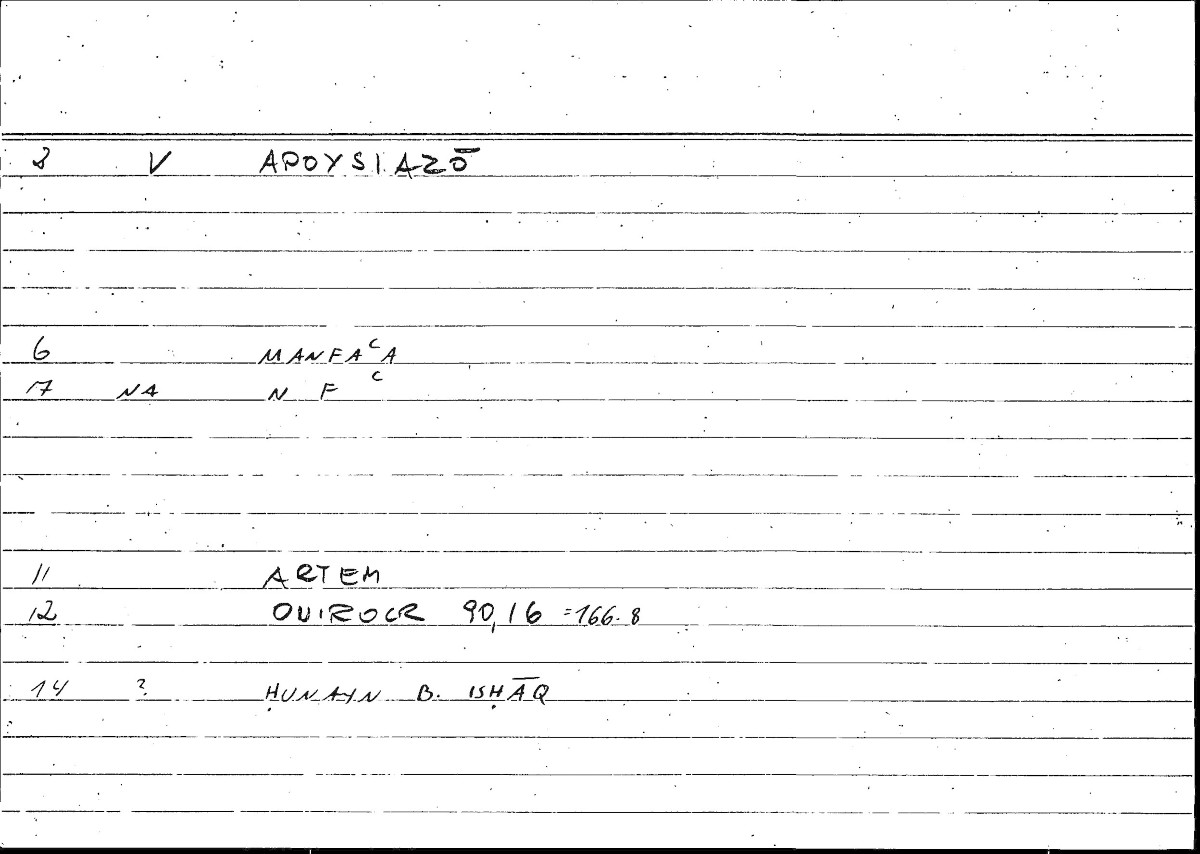 8 V APOYSIAZŌ
6 MANFAʿA
17 NA N F ʿ
11 ARTEM
12 ONIROCR 90,16 =166.8
14 ? ḤUNAYN B. ISḤĀQ